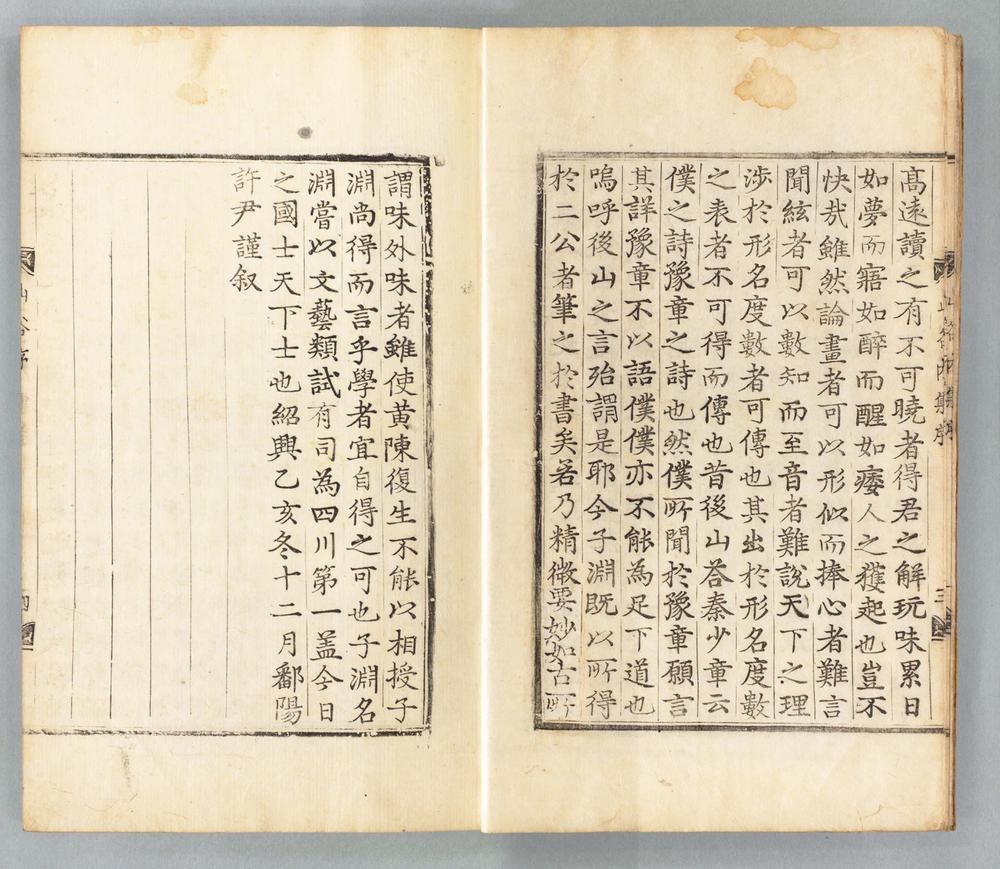 高遠讀之有不可曉者得君之解玩味累日
如夢而寤如醉而醒如痿人之獲起也豈不
快哉雖然論畫者可以形似而捧心者難言
聞絃者可以數知而至音者難說天下之理
涉於形名度數者可傳也其出於形名度數
之表者不可得而傳也昔後山荅秦少章云
僕之詩豫章之詩也然僕所聞於豫章願言
其詳豫章不以語僕僕亦不能為足下道也
嗚呼後山之言殆謂是耶今子淵既以所得
於二公者筆之於書矣若乃精微要妙如古所
謂味外味者雖使黄陳復生不能以相授子
淵尚得而言乎學者宜自得之可也子淵名
淵嘗以文藝類試有司為四川第一盖今日
之國士天下士也紹興乙亥冬十二月鄱陽
許尹謹叙